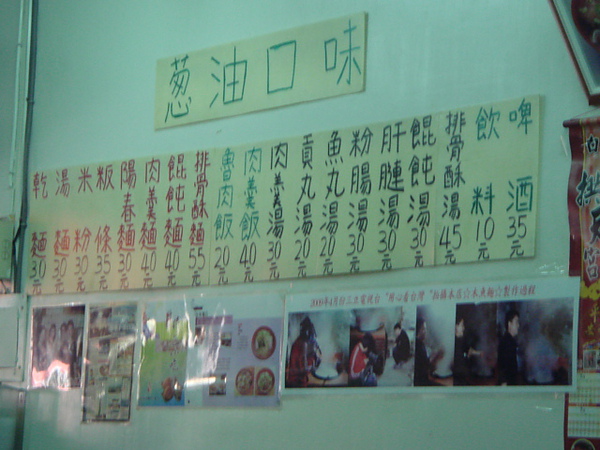 葱油口味
乾麵30元
湯麵30元
米粉30元
粄條35元
陽春麵30元
肉羹麵40元
餛飩麵40元
排骨酥麵55元
魯肉飯20元
肉羹飯40元
肉羹湯30元
貢丸湯20元
魚丸湯20元
粉腸湯30元
肝腱湯30元
餛飩湯30元
排骨酥湯45元
飲料10元
啤酒35元